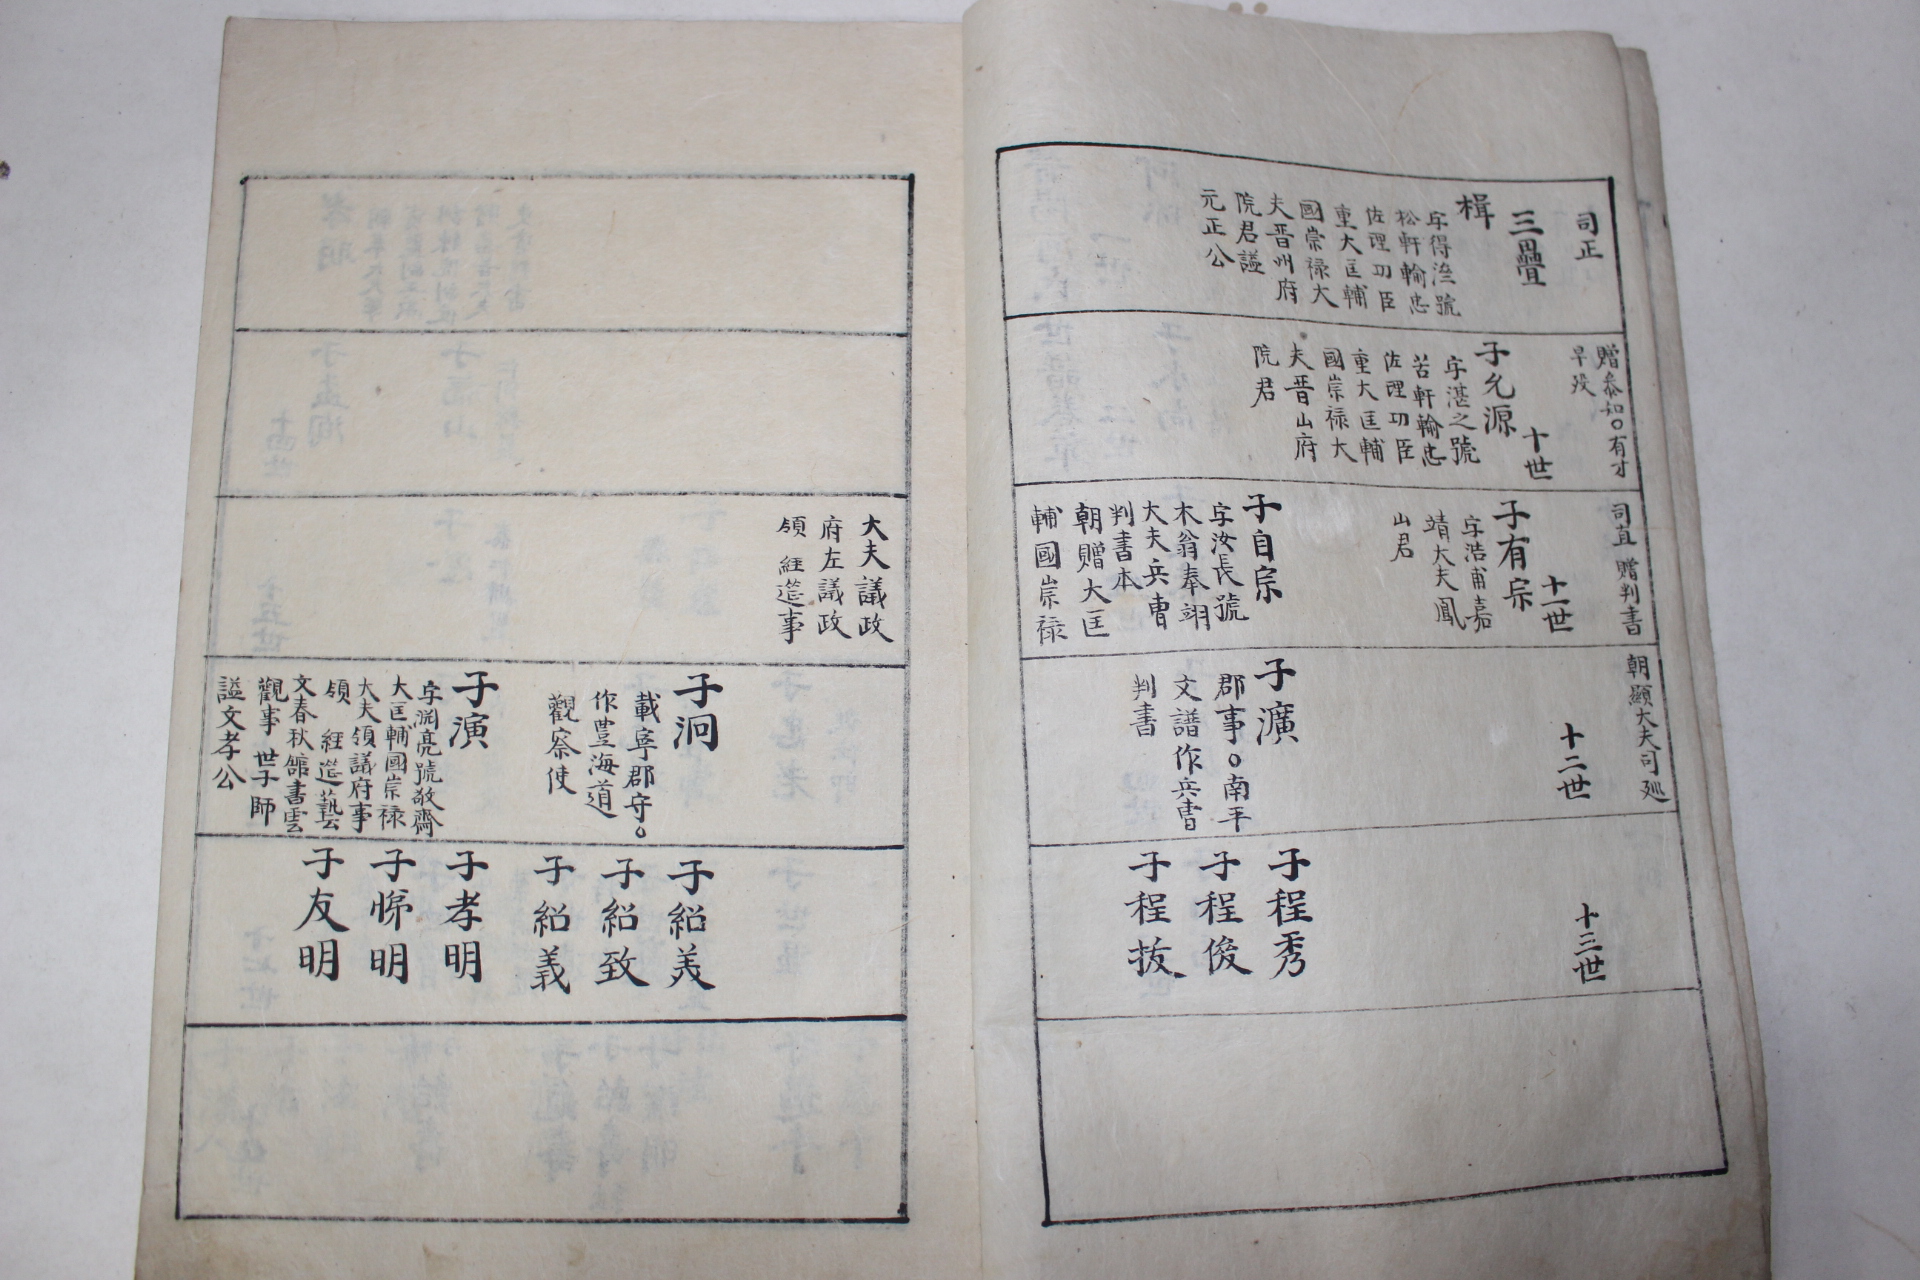 司正
三疊
楫
字得濟號
松軒輸忠
佐理功臣
重大匡輔
國崇禄大
夫晋州府
院君謚
元正公
贈叅知○有才
早歿
十世
子允源
字湛之號
苦軒輸忠
佐理功臣
重大匡輔
國崇禄大
夫晋山府
院君
司直 贈判書
十一世
子有宗
字浩甫嘉
靖大夫鳳
山君
子自宗
字汝長號
木翁奉翊
大夫兵曺
判書本
朝贈大匡
輔國崇禄
朝顯大夫司廵
十二世
子濂
郡事○南平
文譜作兵曺
判書
十三世
子程秀
子程俊
子程拔
大夫議政
府左議政
領 經筵事
子泂
載寧郡守○
作豊海道
觀察使
子演
字淵亮號敬齋
大匡輔國崇禄
大夫領議府事
領 經筵藝
文春秋館書雲
觀事 世子師
謚文孝公
子紹美
子紹致
子紹義
子孝明
子悌明
子友明